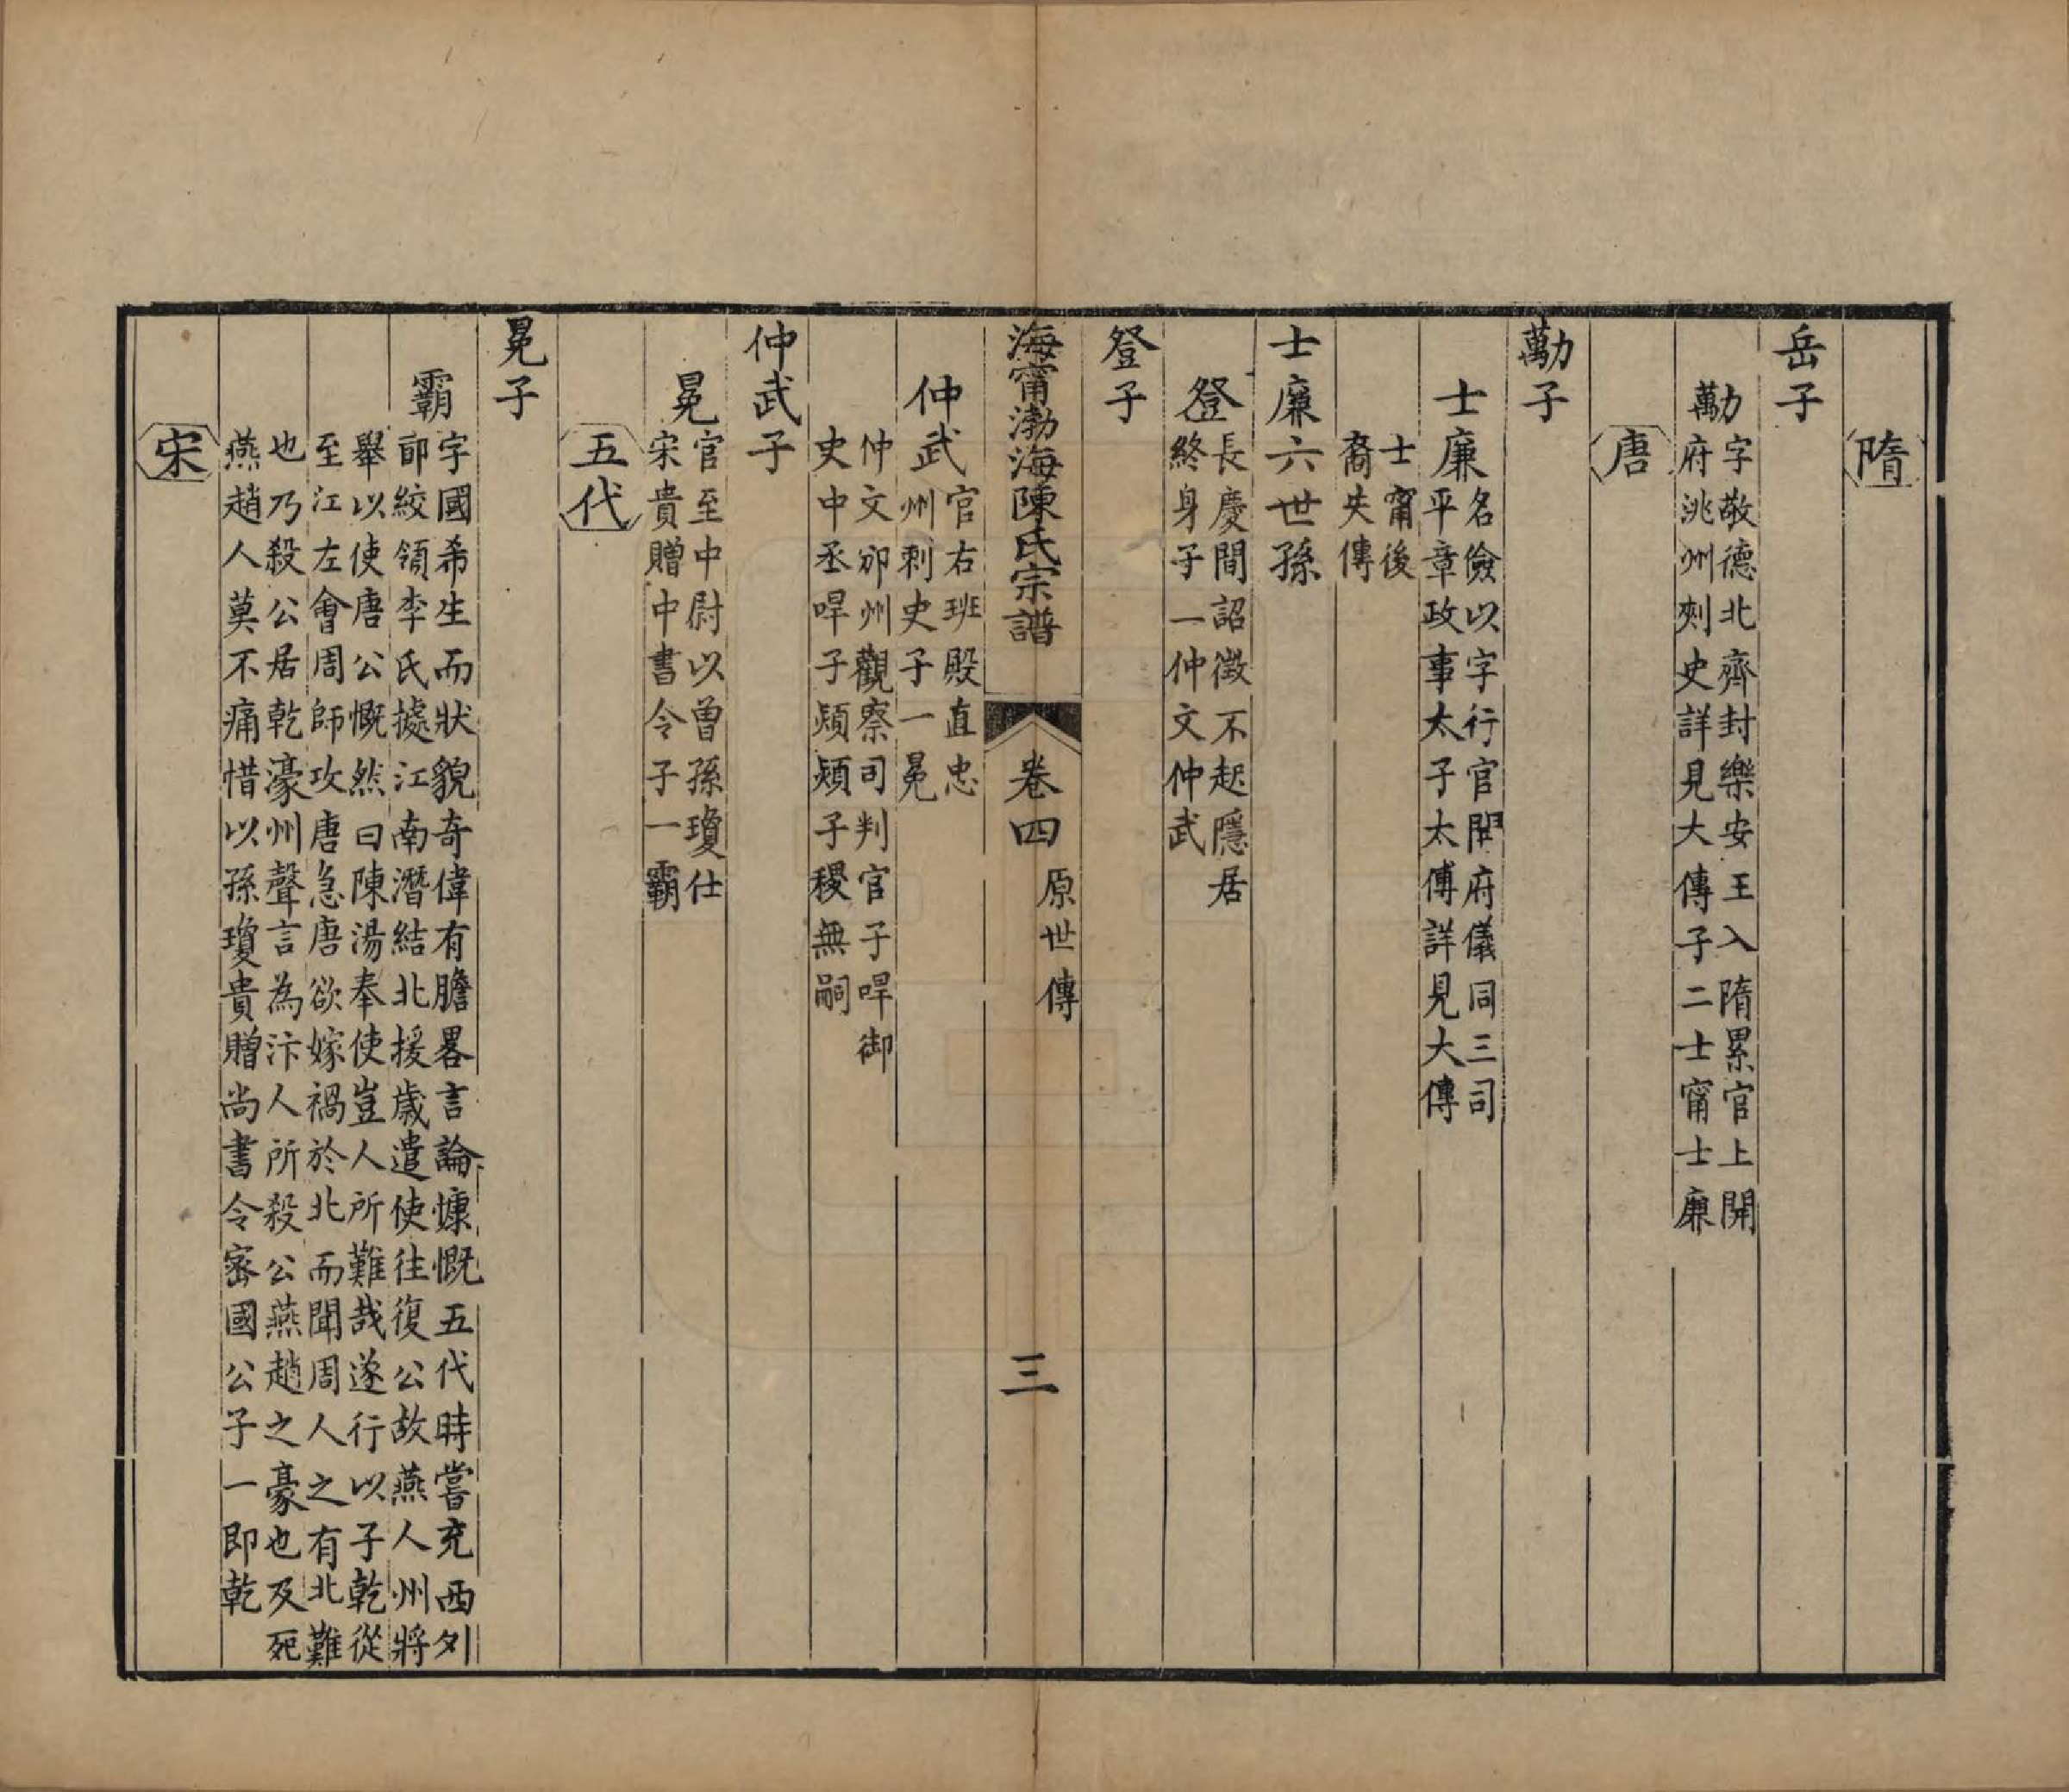 隋
岳子
勱
字敬德北齊封樂安王入隋累官上開
府洮州刺史詳見大傳子二士甯士廉
唐
勱子
士廉
名儉以字行官開府儀同三司
平章政事太子太傅詳見大傳
士甯後
裔失傳
士廉六世孫
登
長慶間詔徵不起隱居
終身子一仲文仲武
登子
海甯渤海陳氏宗譜
卷四
原世傳
三
仲武
官右班殿直忠
州刺史子一冕
仲文邠州觀察司判官子琾御
史中丞琾子熲熲子稷無嗣
仲武子
冕
官至中尉以曾孫瓊仕
宋貴贈中書令子一霸
五代
冕子
霸
字國希生而狀貌奇偉有膽畧言論慷慨五代時嘗充西列
郎絞領李氏據江南潛結北援歲遣使往復公故燕人州將
舉以使唐公慨然曰陳湯奉使豈人所難哉遂行以子乾從
至江左會周師攻唐急唐欲嫁禍於北而聞周人之有北難
也乃殺公居乾濠州聲言為汴人所殺公燕趙之豪也及死
燕趙人莫不痛惜以孫瓊貴贈尚書令密國公子一即乾
宋